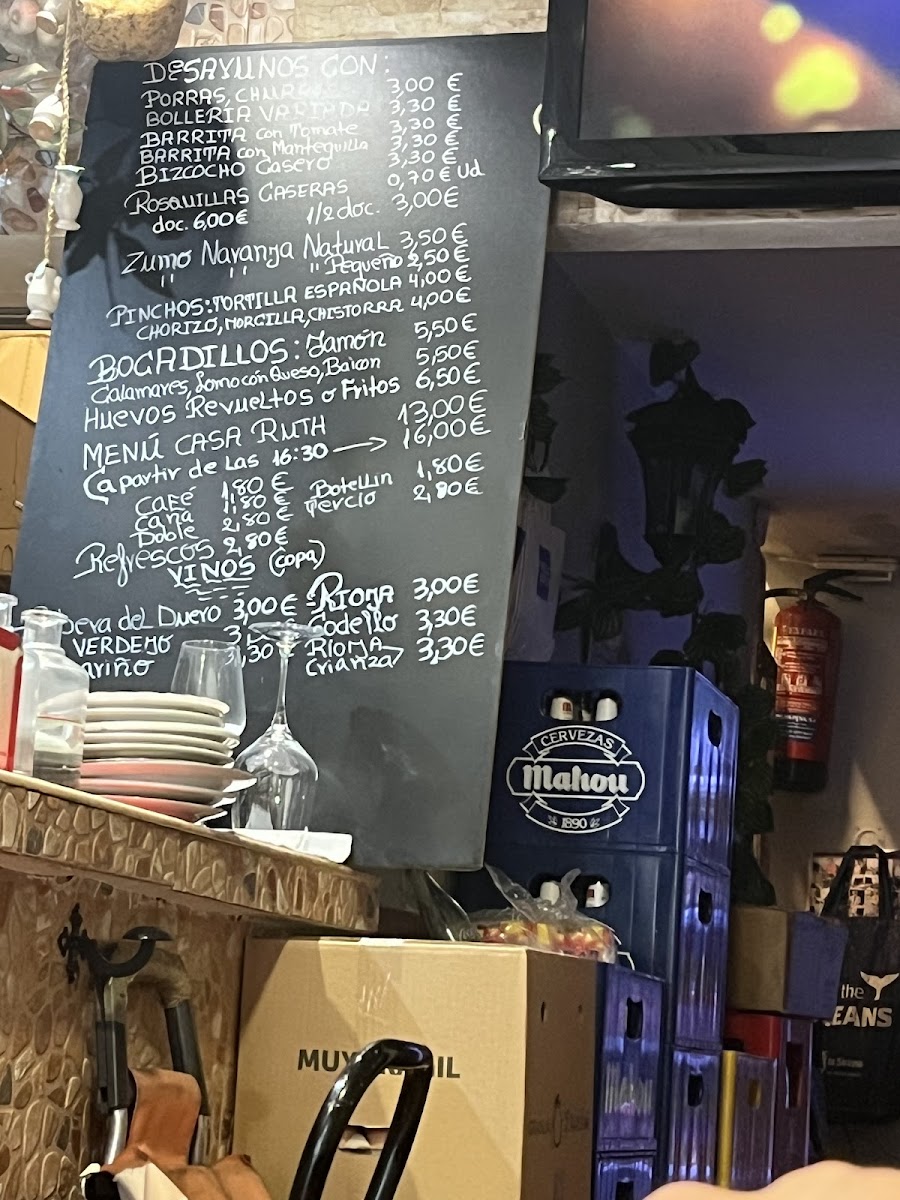 DESAYUNOS CON:
PORRAS, CHURROS 3,00 €
BOLLERIA VARIADA 3,30 €
BARRITA con Tomate 3,30 €
BARRITA con Mantequilla 3,30 €
BIZCOCHO Casero 3,30 €
ROSQUILLAS CASERAS 0,70 € Ud
doc. 6,00 € 1/2 doc. 3,00 €
Zumo Naranja Natural 3,50 €
" " " Pequeño 2,50 €
PINCHOS: TORTILLA ESPAÑOLA 4,00 €
CHORIZO, MORCILLA, CHISTORRA 4,00 €
BOCADILLOS: Jamón 5,50 €
Calamares, Lomo con Queso, Baicon 5,50 €
Huevos Revueltos o Fritos 6,50 €
MENÚ CASA RUTH 13,00 €
(a partir de las 16:30 → 16,00 €
CAFÉ 1,80 € Botellin 1,80 €
Caña 1,80 € Tercio 2,80 €
Doble 2,80 €
Refrescos 2,80 €
VINOS (copa)
beva del Duero 3,00 € RIOJA 3,00 €
VERDEJO Godello 3,30 €
ariño 3,30 € RIOJA Crianza 3,30 €
CERVEZAS
Mahou
1890
MUY FRAGIL
the
EANS